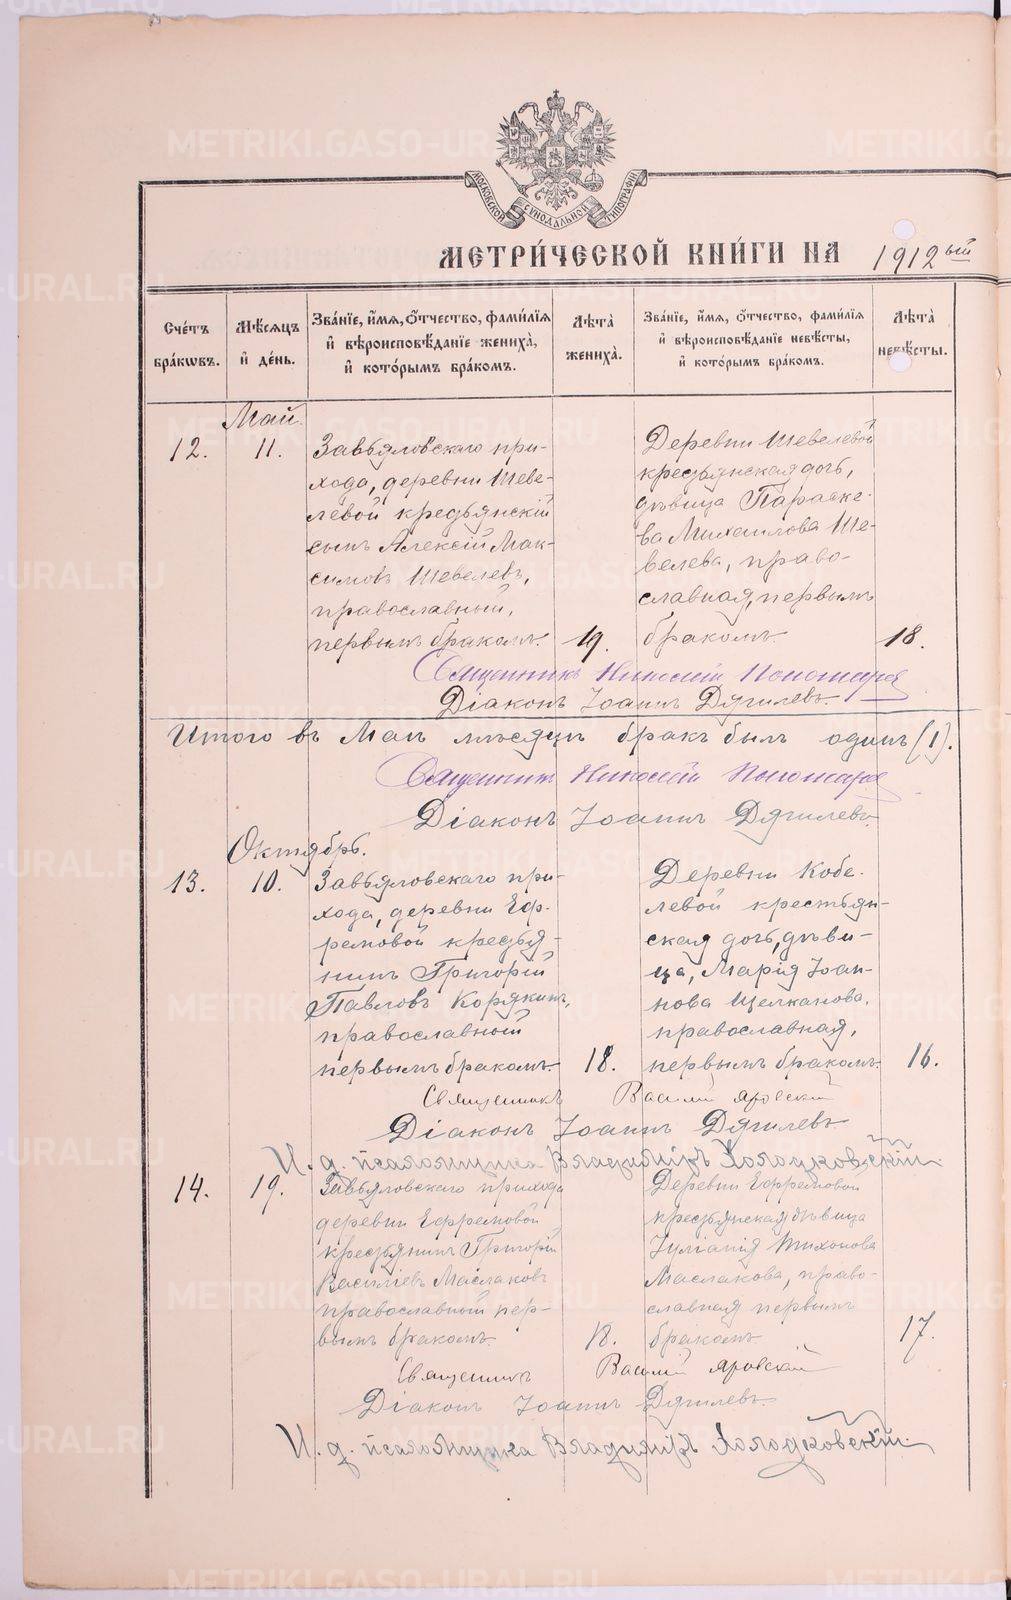 МОСКОВСКОЙ СѴНОДАЛЬНОЙ ТИПОГРАФІИ
МЕТРИ́ЧЕСКОЙ КНИ́ГИ НА 1912ый
Сче́тъ бра́кѡвъ.
Мѣ́сяцъ и҆ де́нь.
Зва́нїе, и҆́мя, ѻ҆́тчество, фами́лїя и҆ вѣроисповѣ́данїе жениха̀, и҆ кото́рымъ бра́комъ.
Лѣта̀ жениха̀.
Зва́нїе, и҆́мя, ѻ҆́тчество, фами́лїя и҆ вѣроисповѣ́данїе невѣ́сты, и҆ кото́рымъ бра́комъ.
Лѣта̀ невѣ́сты.
Май.
12.
11.
Завьяловскаго при-
хода, деревни Шеве-
левой кресьянскій
сынъ Алексій Мак-
симовъ Шевелевъ,
православный,
первымъ бракомъ.
19.
Деревни Шевелевой
кресьянская дочь,
дѣвица Параске-
ва Михаилова Ше-
велева, право-
славная, первымъ
бракомъ
18.
Священникъ Николай Пономарев
Діаконъ Іоаннъ Дягилевъ.
Итого въ Маѣ мѣсяцѣ бракъ былъ одинъ (1).
Священникъ Николай Пономарев
Діаконъ Іоаннъ Дягилевъ.
Октябрь.
13.
10.
Завьяловскаго при-
хода, деревни Еф-
ремовой кресья-
нинъ Григорій
Павловъ Корякинъ,
православный
первымъ бракомъ.
18.
Деревни Кобе-
левой крестьян-
ская дочь, дѣви-
ца, Марія Іоан-
нова Щелканова,
православная,
первымъ бракомъ.
16.
Священникъ Василій Яровскій
Діаконъ Іоаннъ Дягилевъ
И. д. псаломщика Владиміръ Холодковскій.
14.
19.
Завьяловскаго прихода
деревни Ефремовой
кресьянинъ Григорій
Василіевъ Маслаковъ
православный пер-
вымъ бракомъ.
18.
Деревни Ефремовой
кресьянская дѣвица
Іуліанія Тихонова
Маслакова, право-
славная первымъ
бракомъ
17.
Священникъ Василій Яровскій
Діаконъ Іоаннъ Дягилевъ.
И. д. псаломщика Владиміръ Холодковскій.
METRIKI.GASO-URAL.RU